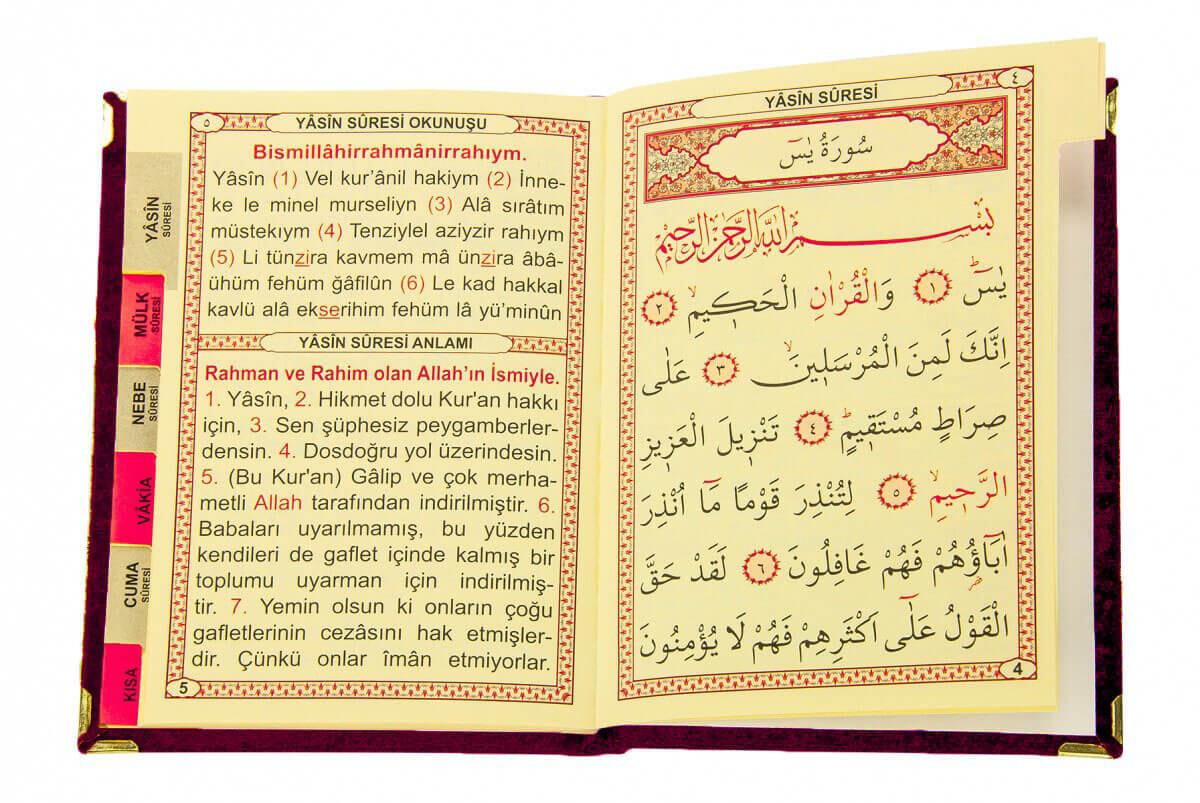 ٤
YÂSÎN SÛRESİ
سُورَةُ يٰسٓ
بِسْمِ اللّٰهِ الرَّحْمٰنِ الرَّحِيمِ
يٰسٓۜ ﴿١﴾ وَالْقُرْاٰنِ الْحَك۪يمِۙ ﴿٢﴾
اِنَّكَ لَمِنَ الْمُرْسَل۪ينَۙ ﴿٣﴾ عَلٰى
صِرَاطٍ مُسْتَق۪يمٍۜ ﴿٤﴾ تَنْز۪يلَ الْعَز۪يزِ
الرَّح۪يمِۙ ﴿٥﴾ لِتُنْذِرَ قَوْمًا مَٓا اُنْذِرَ
اٰبَٓاؤُ۬هُمْ فَهُمْ غَافِلُونَ ﴿٦﴾ لَقَدْ حَقَّ
الْقَوْلُ عَلٰٓى اَكْثَرِهِمْ فَهُمْ لَا يُؤْمِنُونَ
4
٥
YÂSÎN SÛRESİ OKUNUŞU
Bismillâhirrahmânirrahıym.
Yâsîn (1) Vel kur’ânil hakiym (2) İnne-
ke le minel murseliyn (3) Alâ sırâtım
müstekıym (4) Tenziylel aziyzir rahıym
(5) Li tünzira kavmem mâ ünzira âbâ-
ühüm fehüm ğafilûn (6) Le kad hakkal
kavlü alâ ekserihim fehüm lâ yü’minûn
YÂSÎN SÛRESİ ANLAMI
Rahman ve Rahim olan Allah’ın İsmiyle.
1. Yâsîn, 2. Hikmet dolu Kur'an hakkı
için, 3. Sen şüphesiz peygamberler-
densin. 4. Dosdoğru yol üzerindesin.
5. (Bu Kur'an) Gâlip ve çok merha-
metli Allah tarafından indirilmiştir. 6.
Babaları uyarılmamış, bu yüzden
kendileri de gaflet içinde kalmış bir
toplumu uyarman için indirilmiş-
tir. 7. Yemin olsun ki onların çoğu
gafletlerinin cezâsını hak etmişler-
dir. Çünkü onlar îmân etmiyorlar.
5
YÂSÎN
SÛRESİ
MÜLK
SÛRESİ
NEBE
SÛRESİ
VÂKIA
CUMA
SÛRESİ
KISA